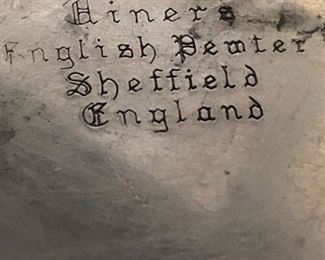 Viners
English Pewter
Sheffield
England